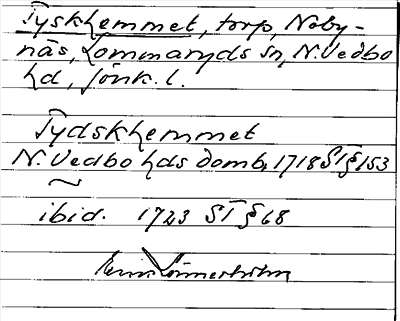 Tyskhemmet, torp, Noby-
näs, Lommaryds sn, N. Vedbo
hd, Jönk. l.
Tydskhemmet
N. Vedbo hds domb, 1718 ST § 153
ibid. 1723 ST § 68